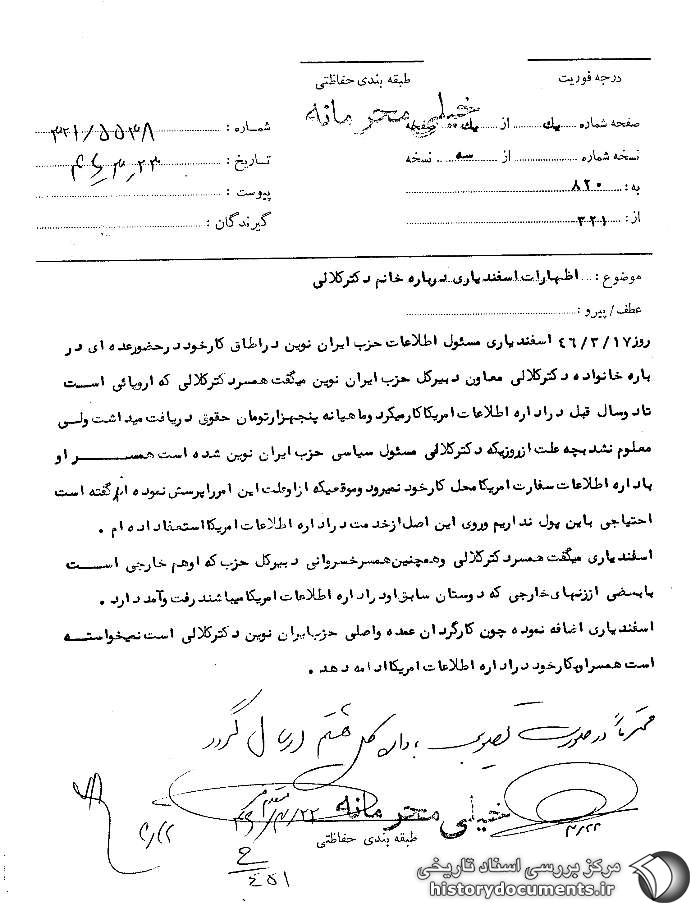 درجه فوریت
طبقه بندی حفاظتی
خیلی محرمانه
صفحه شماره یک از یک صفحه
شماره : ۳۲۱/۵۵۳۸
نسخه شماره از سه نسخه
تاریخ : ۴۶/۳/۲۳
به : ۸۲۰
پیوست :
از : ۳۲۱
گیرندگان :
موضوع : اظهارات اسفندیاری درباره خانم دکترکلالی
عطف / پیرو :
روز ۴۶/۳/۱۷ اسفندیاری مسئول اطلاعات حزب ایران نوین دراطاق کارخوددرحضورعده ای در
باره خانواده دکترکلالی معاون دبیرکل حزب ایران نوین میگفت همسردکترکلالی که اروپائی است
تادوسال قبل دراداره اطلاعات امریکاکارمیکردوماهیانه پنجهزارتومان حقوق دریافت میداشت ولی
معلوم نشدبچه علت ازروزیکه دکترکلالی مسئول سیاسی حزب ایران نوین شده است همسر او
باداره اطلاعات سفارت امریکامحل کارخود نمیرود وموقعیکه ازاوعلت این امرراپرسش نموده ام گفته است
احتیاجی باین پول نداریم وروی این اصل ازخدمت دراداره اطلاعات امریکااستعفاداده ام .
اسفندیاری میگفت همسردکترکلالی وهمچنین همسرخسروانی دبیرکل حزب که اوهم خارجی است
بابعضی اززنهای خارجی که دوستان سابق اودراداره اطلاعات امریکامیباشند رفت وآمد دارد .
اسفندیاری اضافه نموده چون کارگردان عمده واصلی حزب ایران نوین دکترکلالی است نمیخواسته
است همسراوبکارخود دراداره اطلاعات امریکاادامه دهد .
محترماً در صورت تصویب باداره کل هشتم ارسال گردد
خیلی محرمانه
طبقه بندی حفاظتی
۴۵۱
مرکز بررسی اسناد تاریخی
historydocuments.ir